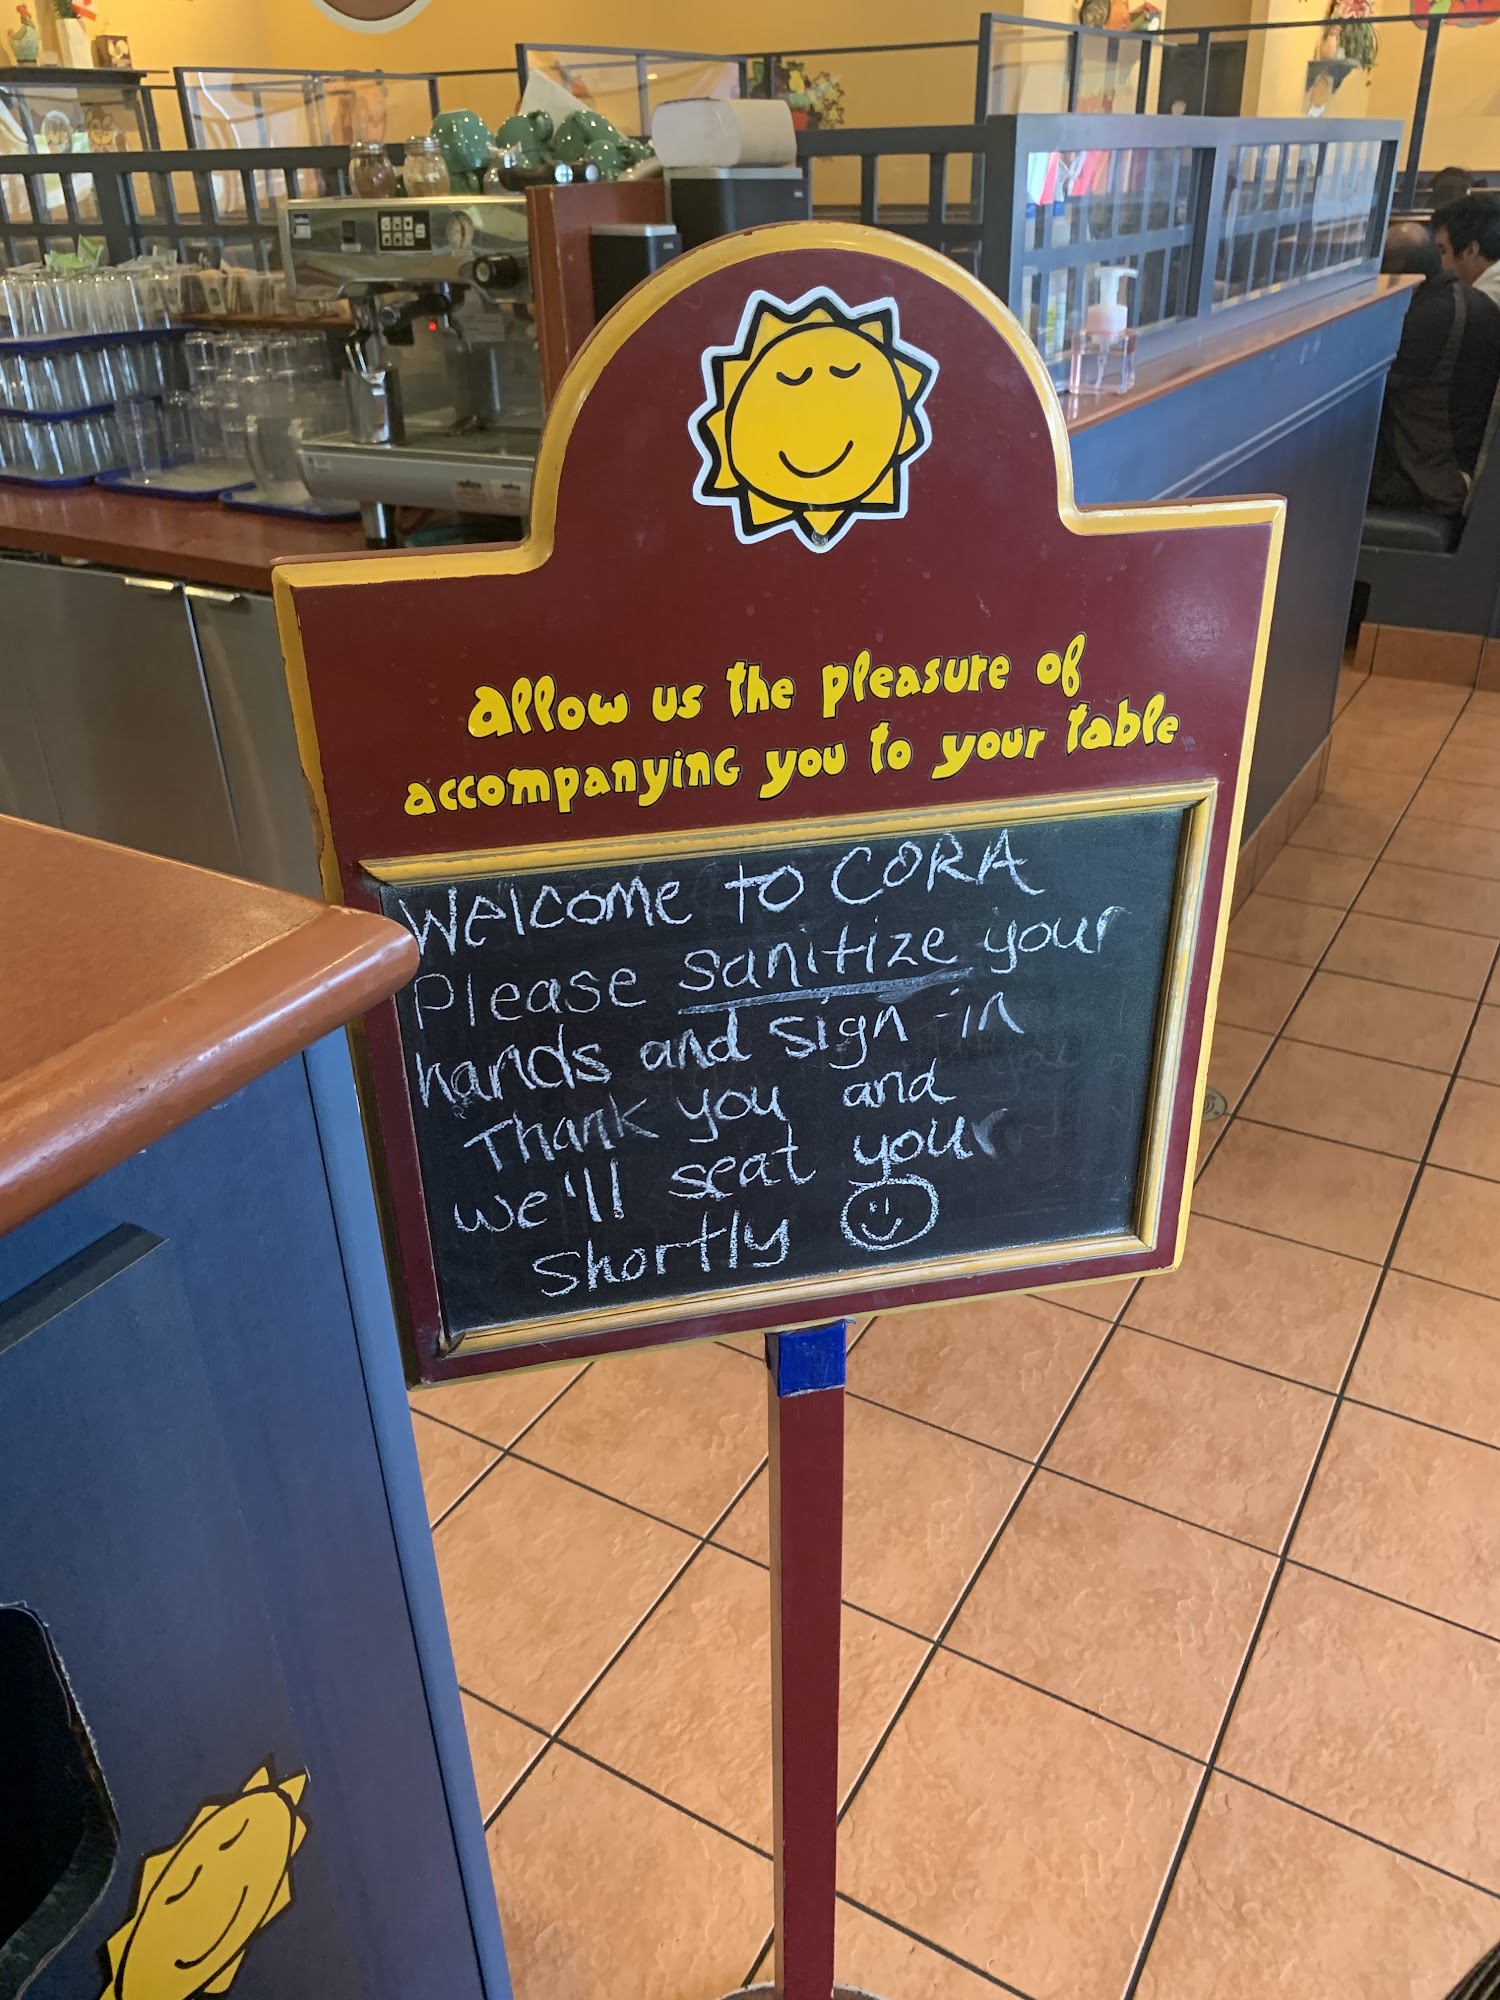 allow us the pleasure of
accompanying you to your table
Welcome to CORA
Please sanitize your
hands and sign-in
Thank you and
we'll seat your
shortly